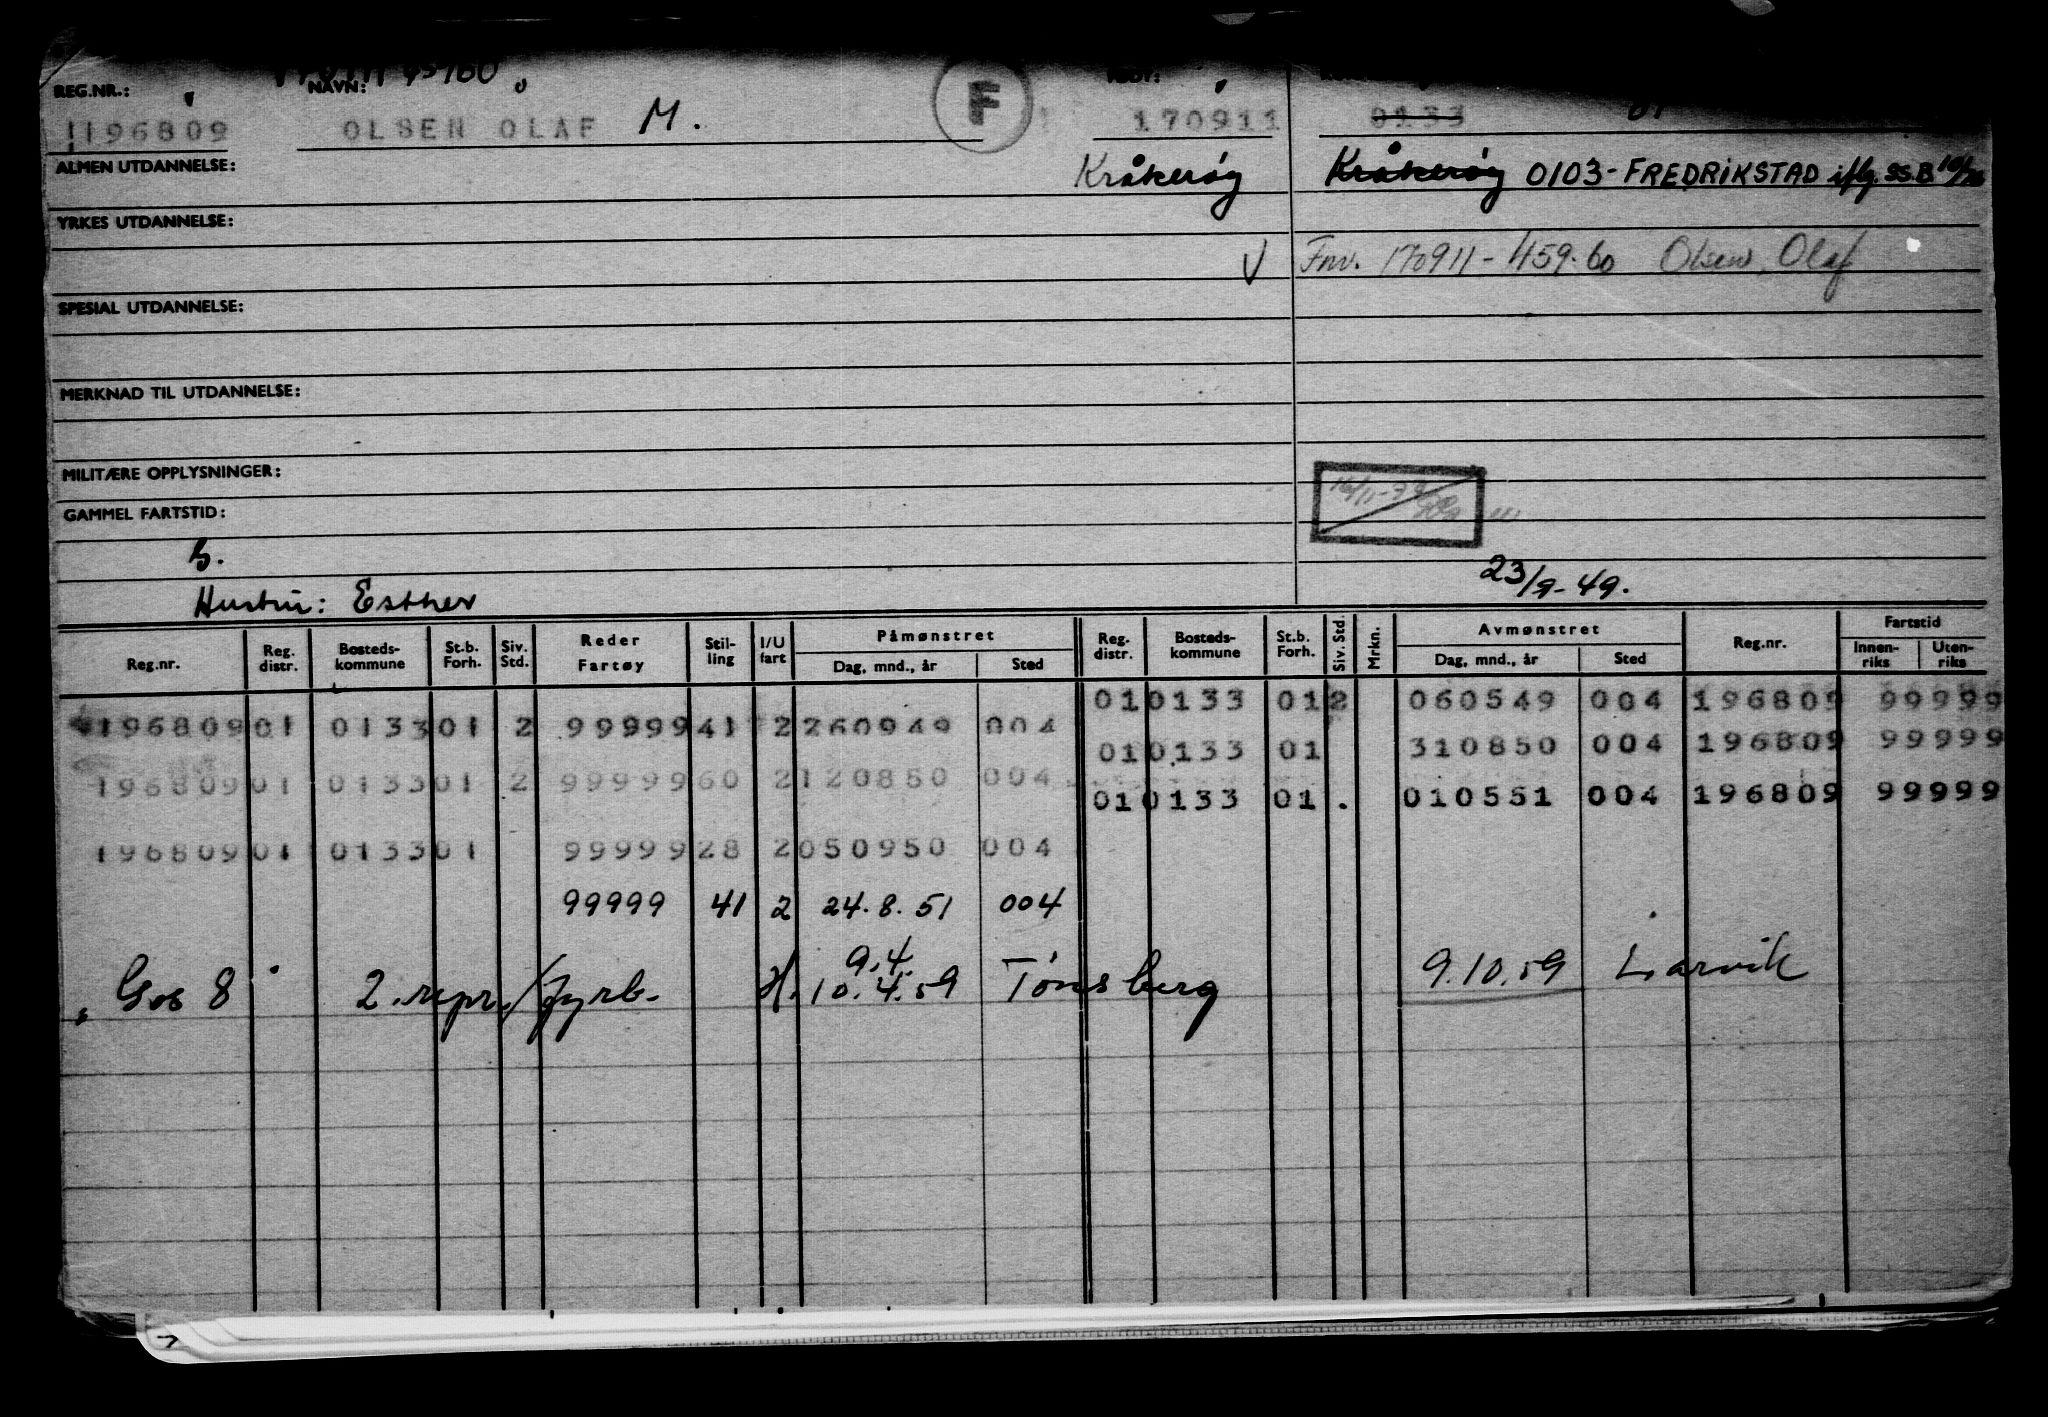 REG.NR.: NAVN: F
196809 OLSEN OLAF M. 170911 0133
ALMEN UTDANNELSE: Kråkerøy Kråkerøy 0103-FREDRIKSTAD iflg. SS.B
YRKES UTDANNELSE:
V Fnr. 170911-459.60 Olsen, Olaf
SPESIAL UTDANNELSE:
MERKNAD TIL UTDANNELSE:
MILITÆRE OPPLYSNINGER:
GAMMEL FARTSTID:
23/9-49.
Hustru: Esther
Reg.nr. Reg. distr. Bosteds-kommune St.b. Forh. Siv. Std. Reder Fartøy Stil-ling I/U fart Påmønstret Dag, mnd., år Sted Reg. distr. Bosteds-kommune St.b. Forh. Siv. Std. Mrkn. Avmønstret Dag, mnd., år Sted Reg.nr. Fartstid Innen-riks Uten-riks
01 0133 01 2 060549 004 196809 99999
196809 01 0133 01 2 99999 41 2 260949 004
01 0133 01 310850 004 196809 99999
196809 01 0133 01 2 99999 60 2 120850 004
01 0133 01 . 010551 004 196809 99999
196809 01 0133 01 99999 28 2 050950 004
99999 41 2 24.8.51 004
9.4.
"Gos 8" 2. repr./fyrb. H. 10.4.59 Tønsberg 9.10.59 Larvik
7